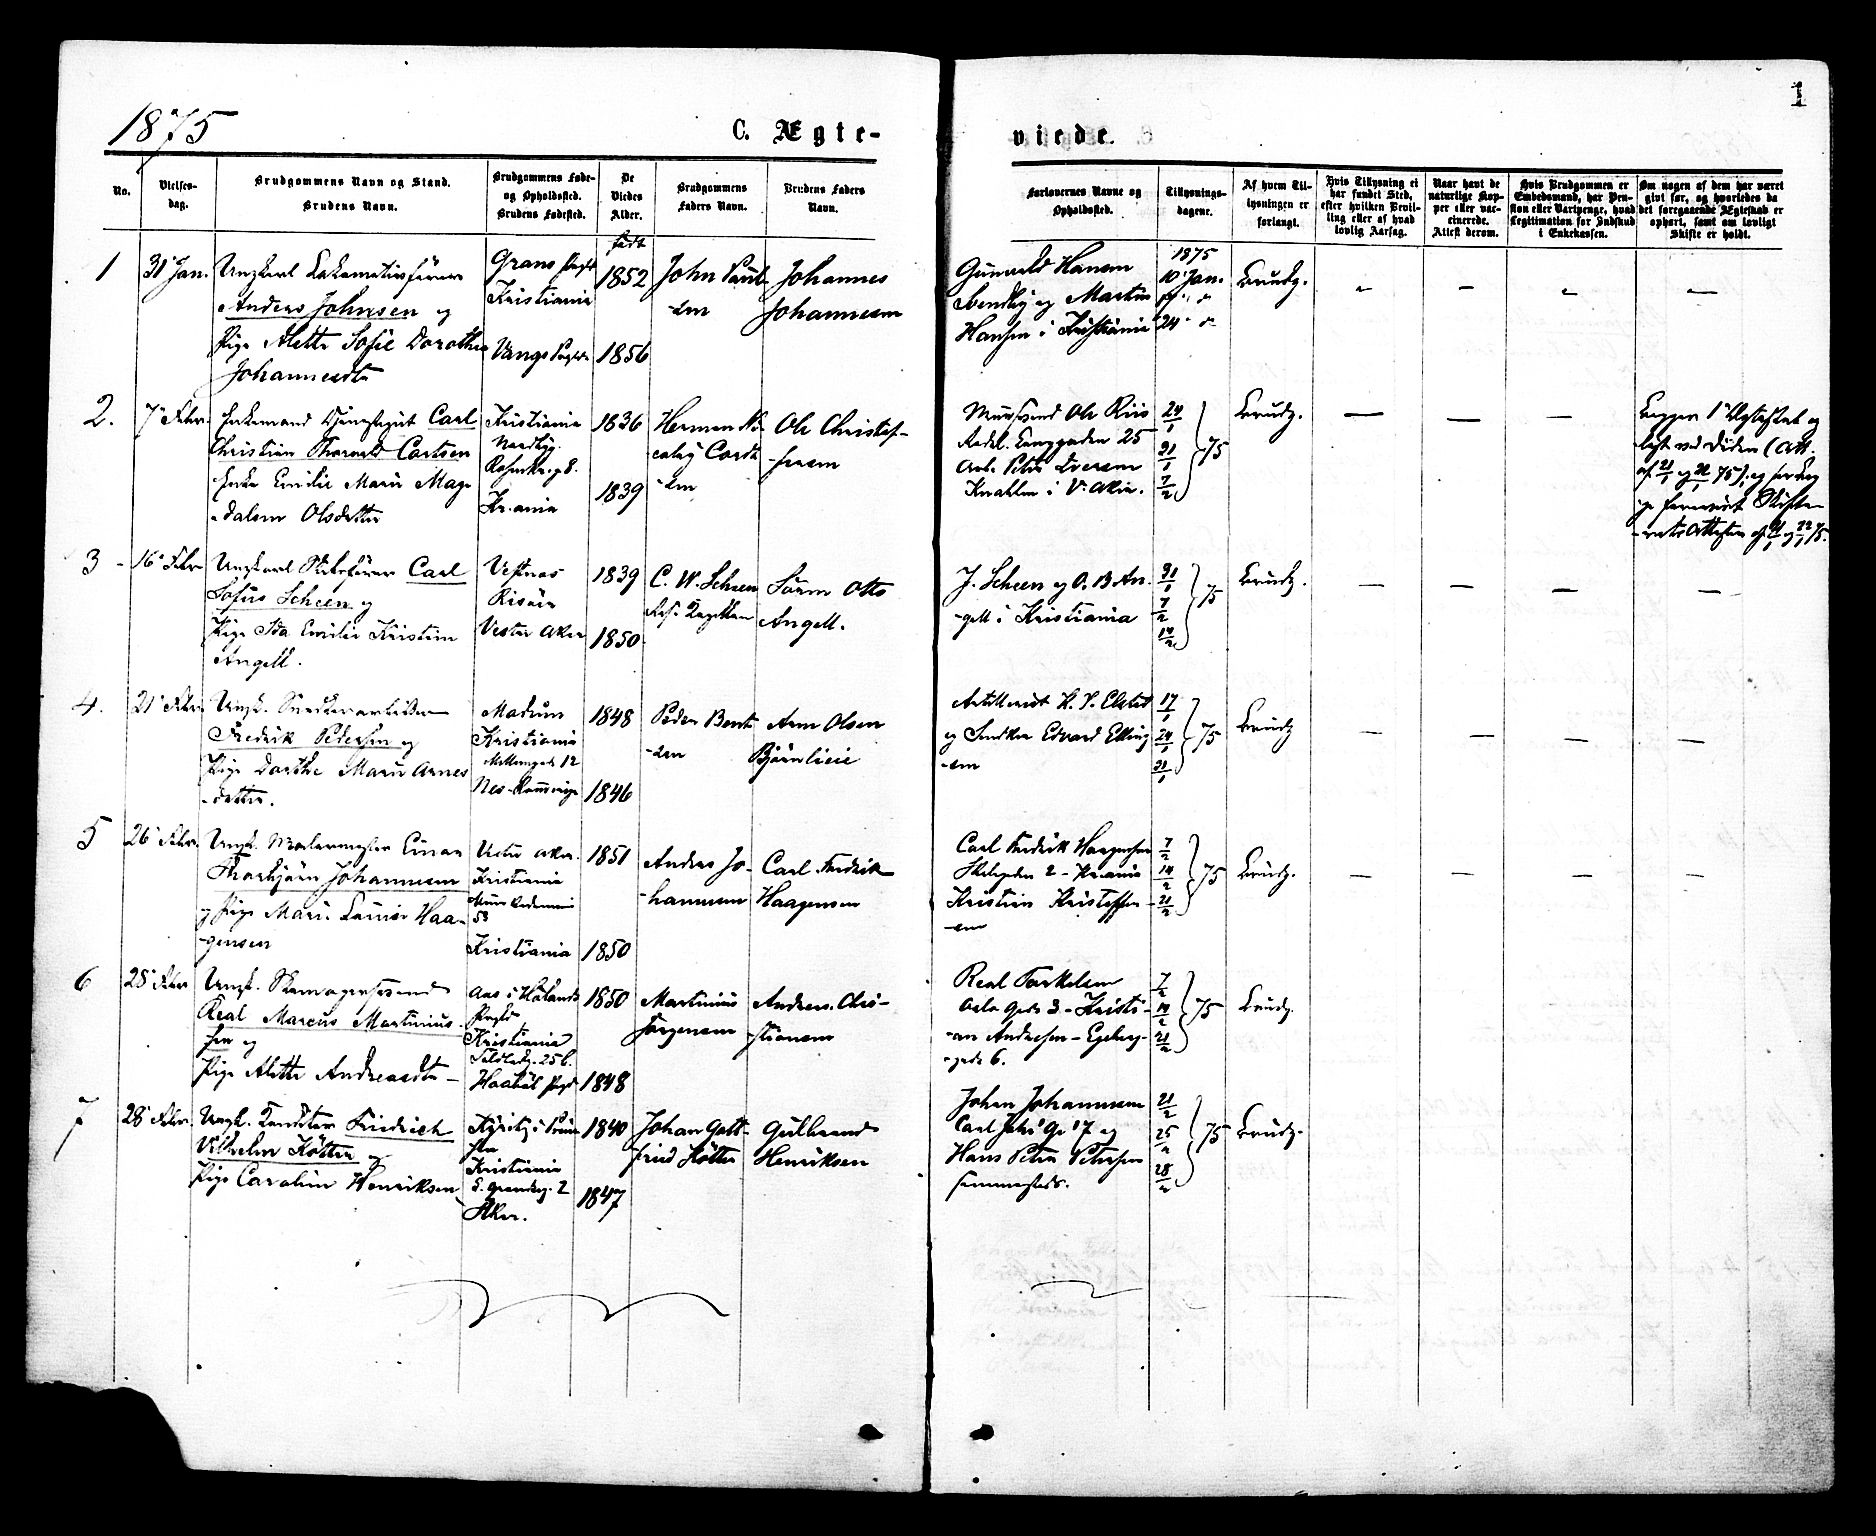 1
1875
C. Ægte-
viede.
No.
Vielses-
dag.
Brudgommens Navn og Stand.
Brudens Navn.
Brudgommens Føde-
og Opholdssted.
Brudens Fødested.
De
Viedes
Alder.
Brudgommens
Faders Navn.
Brudens Faders
Navn.
Forlovernes Navne og
Opholdssted.
Tillysnings-
dagene.
Af hvem Til-
lysningen er
forlangt.
Hvis Tillysning ei
har fundet Sted,
efter hvilken Bevil-
ling eller af hvad
lovlig Aarsag.
Naar havt de
naturlige Kop-
per eller vac-
cinerede.
Attest derom.
Hvis Brudgommen er
Embedsmand, har Pen-
sion eller Vartpenge, hvad
Legitimation for Indskud
i Enkekassen.
Om nogen af dem har været
gift før, og hvorledes da
det foregaaende Ægteskab er
ophørt, samt om lovligt
Skifte er holdt.
født
1
31 Jan.
Ungkarl Lokomotivfører
Anders Johnsen og
Pige Alette Sofie Dorothea
Johannesdtr
Grans Prgld
Kristiania
Vangs Prgld
1852
1856
John Paul-
sen
Johannes
Johannesen
Gunvald Hansen
og Martin
Hansen i Kristiania
1875
10 Jan.
24
Brudg.
2.
7 Febr.
Enkemand Carl
Christian Thorvald Cortsen
Enke Emilie Marie Mag-
dalene Olsdatter
Kristiania
Nordbyg.
8.
Kr.ania
1836
1839
Herman Ni-
colay Cordt-
sen
Ole Christof-
fersen
Muursvend Ole Riis
Langgaden 25
Arb. Peter Iversen
i V. Aker.
24/1
31/1
7/2
75
Brudg.
Begge 1ste Ægteskab
løst ved Døden (Att.
af 21/1 og 22/1 75), og
Skifte-
rets Attester af 21/1 og 22/1 75.
3
16 Febr
Ungkarl Carl
Sofus Scheen og
Pige Ida Emilie Kristine
Angell.
Vestnes
Risøer
Vestre Aker
1839
1850
C. W. Scheen
Kaptein
Søren Otto
Angell.
J. Scheen og O. B. An-
gell i Kristiania
31/1
7/2
14/2
75
Brudg.
4.
21 Febr.
Ungk. Snedkerarbeider
Fredrik Pedersen og
Pige Dorthe Marie Arnes
datter.
Modum
Kristiania
Møllergd. 12
Nes - Romerige
1848
1846
Peder Bent-
sen
Arne Olsen
Bjørnlieie
Artillerist H. P. Elstad
og Snedker Edvard Elling-
sen
17/1
24/1
31/1
75
Brudg
5
26 Febr.
Ungk. Malermester Einar
Thorbjørn Johannesen
og Pige Marie Louise Haa-
gensen
Vestre Aker.
Kristiania
53
Kristiania
1851
1850
Anders Jo-
hannesen
Carl Fredrik
Haagensen
Carl Fredrik Haagensen
2 - Kr.ania
Kristian Kristoffer-
sen
7/2
14/2
21/2
75
Brudg.
6
28 Febr
Ungk. Skomagersvend
Real Marcus Martinius-
sen og
Pige Alette Andreasdtr
Aas i Hølands
Prgld
Kristiania
25 b.
Haabøl Prgld
1850
1848
Martinius
Jørgensen
Andreas Chri-
stiansen
Real Torkelsen
Oslo Gade 3 - Kristi-
an Andresen - Egeberg-
gade 6.
7/2
14/2
21/2
75
Brudg.
7
28 Febr.
Ungk. Konditor Friedrich
Vilhelm Kötter og
Pige Caroline Henriksen
Kyritz i Preus-
sen
Kristiania
2
Aker.
1840
1847
Johan Gott-
fried Kötter
Gulbrand
Henriksen
Johan Johannesen
Carl Joh's G. 17 og
Hans Peter Petersen
sammesteds.
21/2
25/2
28/2
75
Brudg.